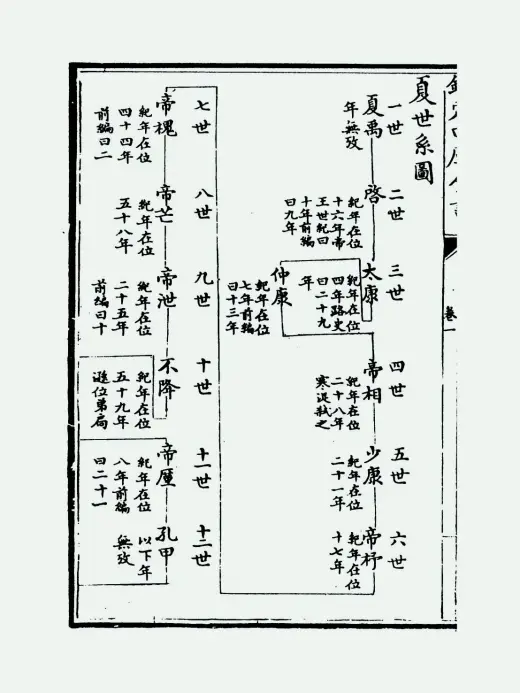 夏世系圖
一世
夏禹
年無攷
二世
啓
紀年在位
十六年帝
王世紀曰
十年前編
曰九年
三世
太康
紀年在位
四年路史
曰二十九
年
仲康
紀年在位
七年前編
曰十三年
四世
帝相
紀年在位
二十八年
寒浞弑之
五世
少康
紀年在位
二十一年
六世
帝杼
紀年在位
十七年
七世
帝槐
紀年在位
四十四年
前編曰二
八世
帝芒
紀年在位
五十八年
九世
帝泄
紀年在位
二十五年
前編曰十
十世
不降
紀年在位
五十九年
遜位弟扃
十一世
帝厪
紀年在位
八年前編
曰二十一
十二世
孔甲
以下年
無攷